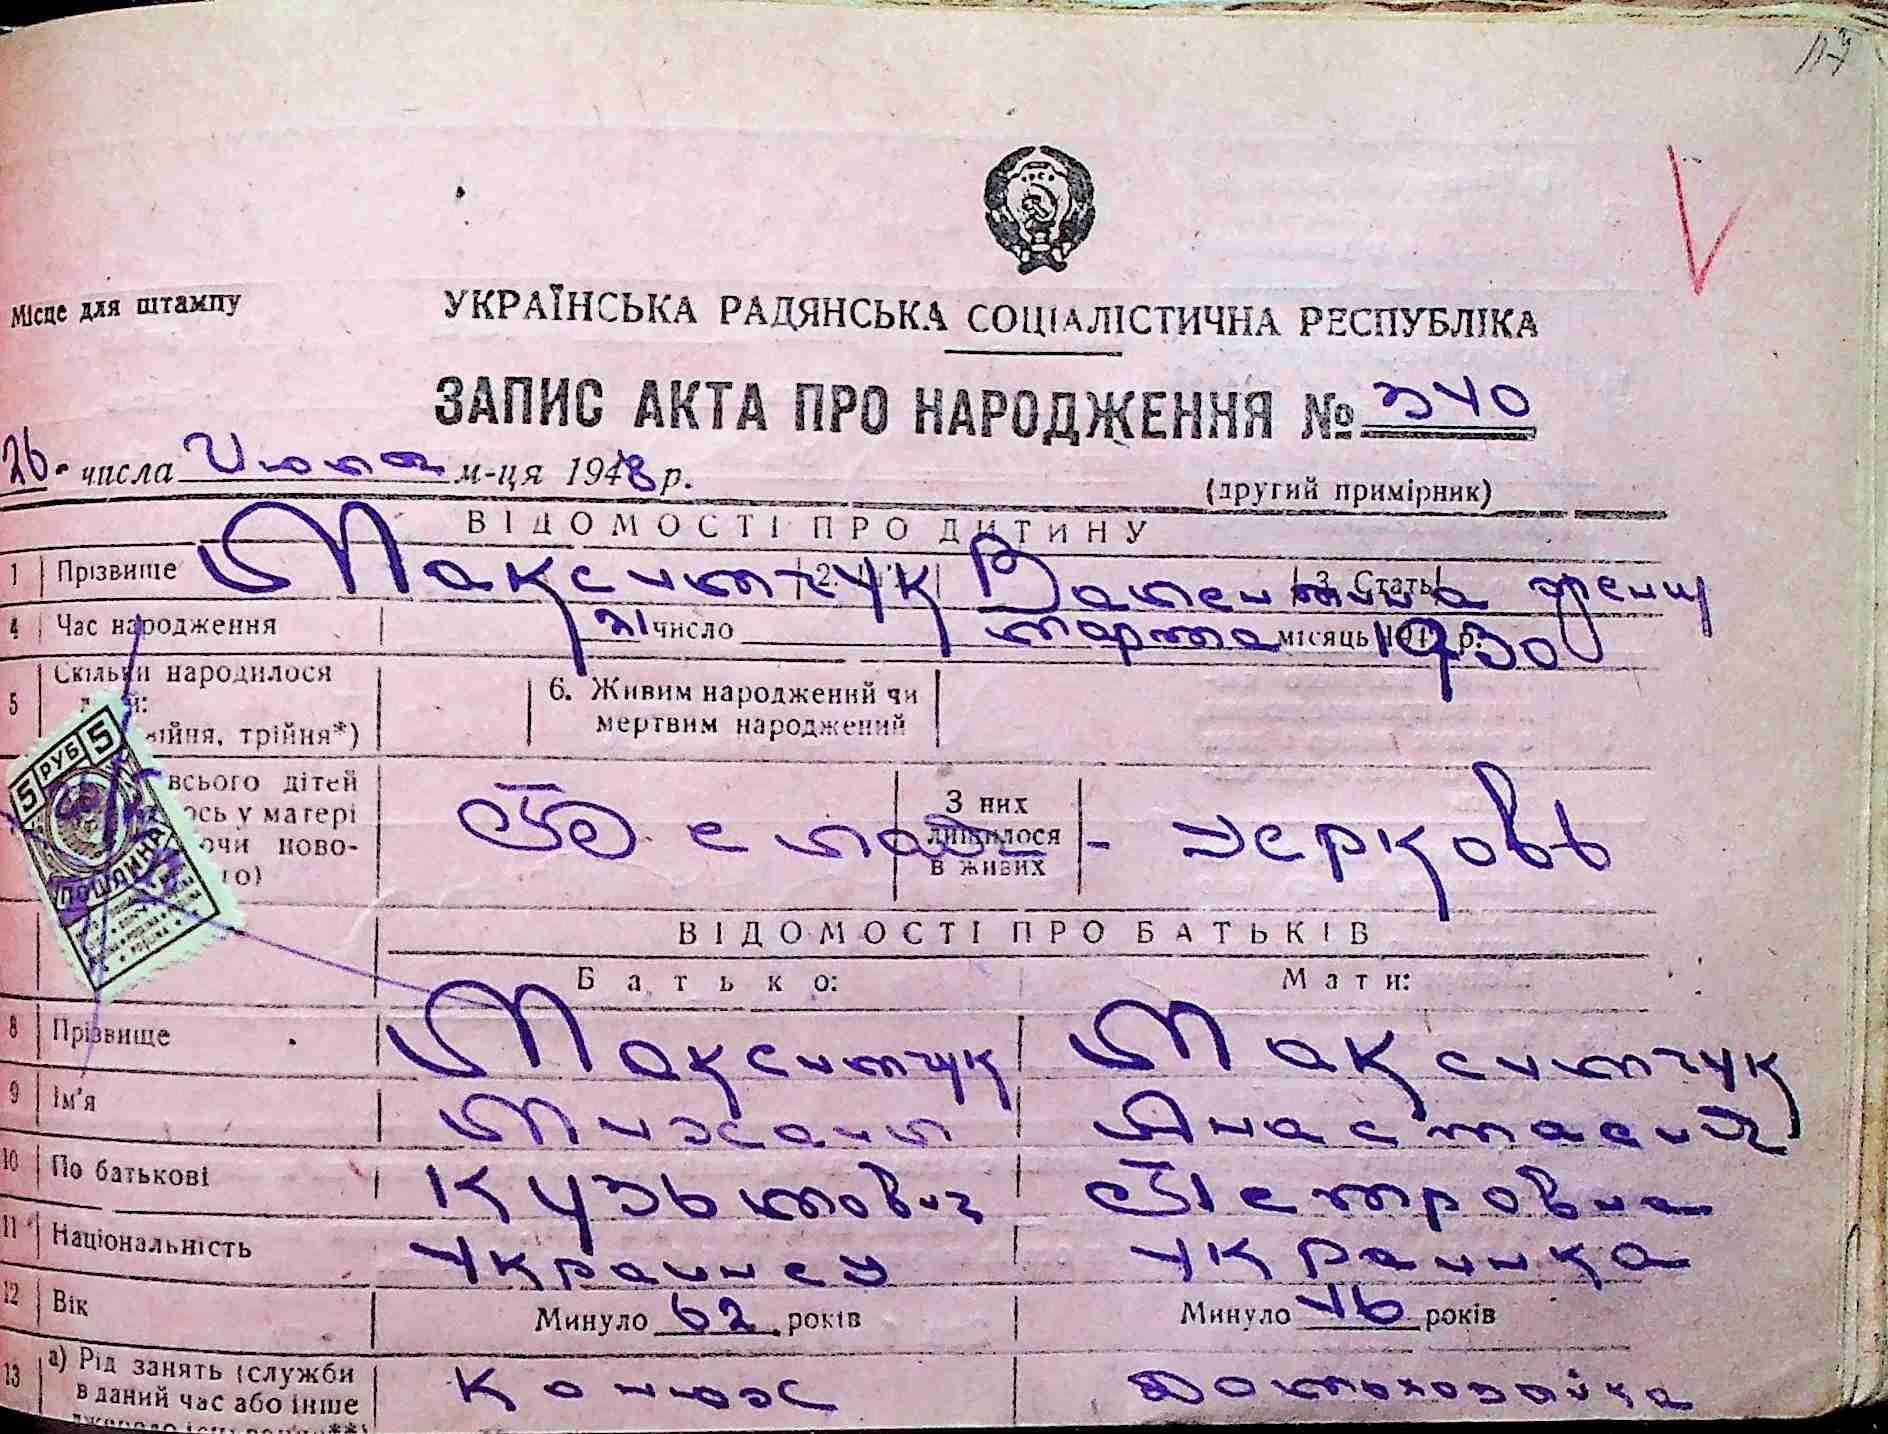 Місце для штампу
УКРАЇНСЬКА РАДЯНСЬКА СОЦІАЛІСТИЧНА РЕСПУБЛІКА
ЗАПИС АКТА ПРО НАРОДЖЕННЯ № 340
26 числа Июля м-ця 1948 р.
(другий примірник)
ВІДОМОСТІ ПРО ДИТИНУ
1 Прізвище Максимчук 2. Валентина 3. Стать женщ
4 Час народження 21 число марта місяць 1930 р.
5 Скільки народилося
6. Живим народжений чи мертвим народжений
трійня*)
всього дітей
у матері
ново-
З них лишилося в живих
церковь
ВІДОМОСТІ ПРО БАТЬКІВ
Батько: Мати:
8 Прізвище Максимчук Максимчук
9 Ім'я Михаил Анастасия
10 По батькові Кузьмович Петровна
11 Національність Украинец Украинка
12 Вік Минуло 62 років Минуло 46 років
13 а) Рід занять (служби Конюх Домохозяйка
в даний час або інше
5 РУБ 5
ПОШЛИНА